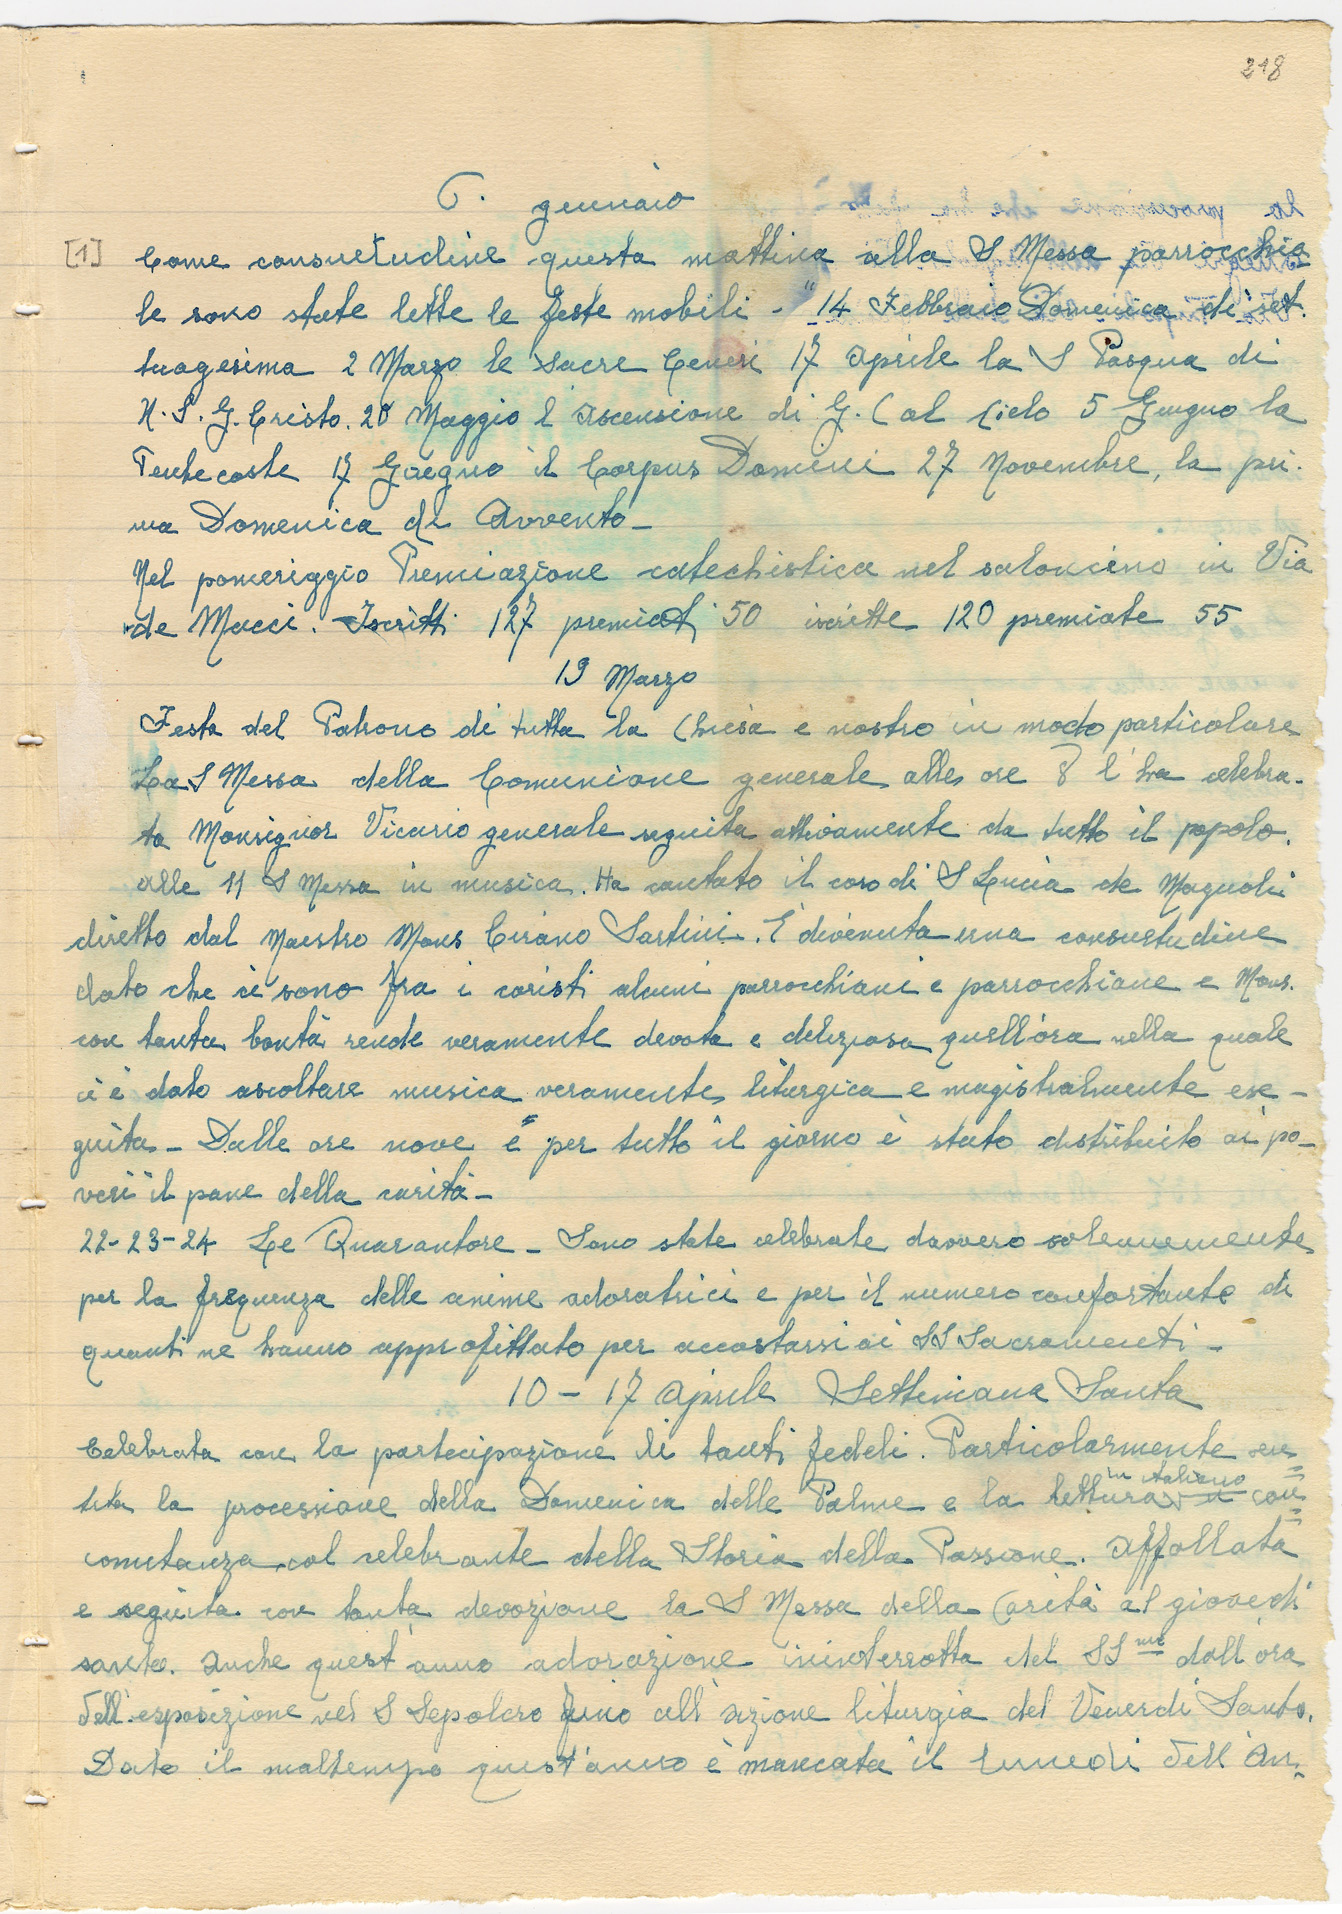 218
6. gennaio
[1] Come consuetudine questa mattina alla S Messa parrocchia
le sono state lette le feste mobili - "14 Febbraio Domenica di set.
tuagesima 2 Marzo le Sacre Ceneri 17 Aprile la S Pasqua di
N. S. G. Cristo. 26 Maggio l'Ascensione di G. C al Cielo 5 Giugno la
Pentecoste 17 Giugno il Corpus Domini 27 Novembre, la pri.
ma Domenica di Avvento -
Nel pomeriggio Premiazione catechistica nel saloncino in Via
de Macci. Iscritti 127 premiati 50 iscritte 120 premiate 55
19 Marzo
Festa del Patrono di tutta la Chiesa e nostro in modo particolare
La S Messa della Comunione generale alle ore 8 l'ha celebra-
ta Monsignor Vicario generale seguita attivamente da tutto il popolo.
alle 11 S Messa in musica. Ha cantato il coro di S Lucia de Magnoli
diretto dal Maestro Mons Cirano Sartini. È divenuta una consuetudine
dato che ci sono fra i coristi alcuni parrocchiani e parrocchiane e Mons.
con tanta bontà rende veramente devota e deliziosa quell'ora nella quale
ci è dato ascoltare musica veramente liturgica e magistralmente ese-
guita - Dalle ore nove e per tutto il giorno è stato distribuito ai po-
veri il pane della carità -
22-23-24 Le Quarantore - Sono state celebrate davvero solennemente
per la frequenza delle anime adoratrici e per il numero confortante di
quanti ne hanno approfittato per accostarsi ai SS Sacramenti -
10 - 17 Aprile Settimana Santa
Celebrata con la partecipazione di tanti fedeli. Particolarmente sen=
tita la processione della Domenica delle Palme e la lettura in italiano con=
comitanza col celebrante della Storia della Passione. Affollata
e seguita con tanta devozione la S Messa della Carità al giovedì
santo. Anche quest'anno adorazione ininterrotta del SS.mo dall'ora
dell'esposizione nel S Sepolcro fino all'azione liturgia del Venerdi Santo.
Dato il maltempo quest'anno è mancata il lunedi dell'An-